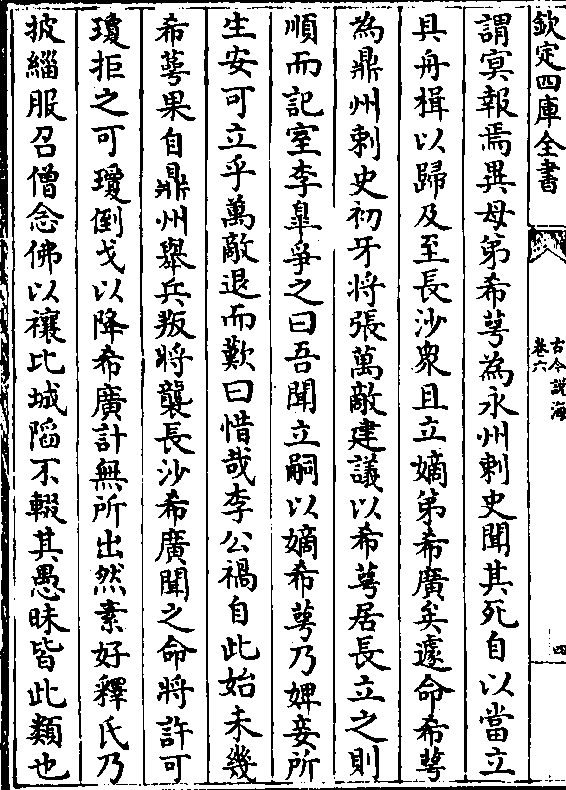 欽定四庫全書
古今說海
卷六
四
謂冥報焉異母弟希萼為永州刺史聞其死自以當立
具舟楫以歸及至長沙衆且立嫡弟希廣矣遽命希萼
為鼎州刺史初牙將張萬敵建議以希萼居長立之則
順而記室李臯爭之曰吾聞立嗣以嫡希萼乃婢妾所
生安可立乎萬敵退而歎曰惜哉李公禍自此始未幾
希萼果自鼎州舉兵叛將襲長沙希廣聞之命將許可
瓊拒之可瓊倒戈以降希廣計無所出然素好釋氏乃
披緇服召僧念佛以禳比城陷不輟其愚昧皆此類也